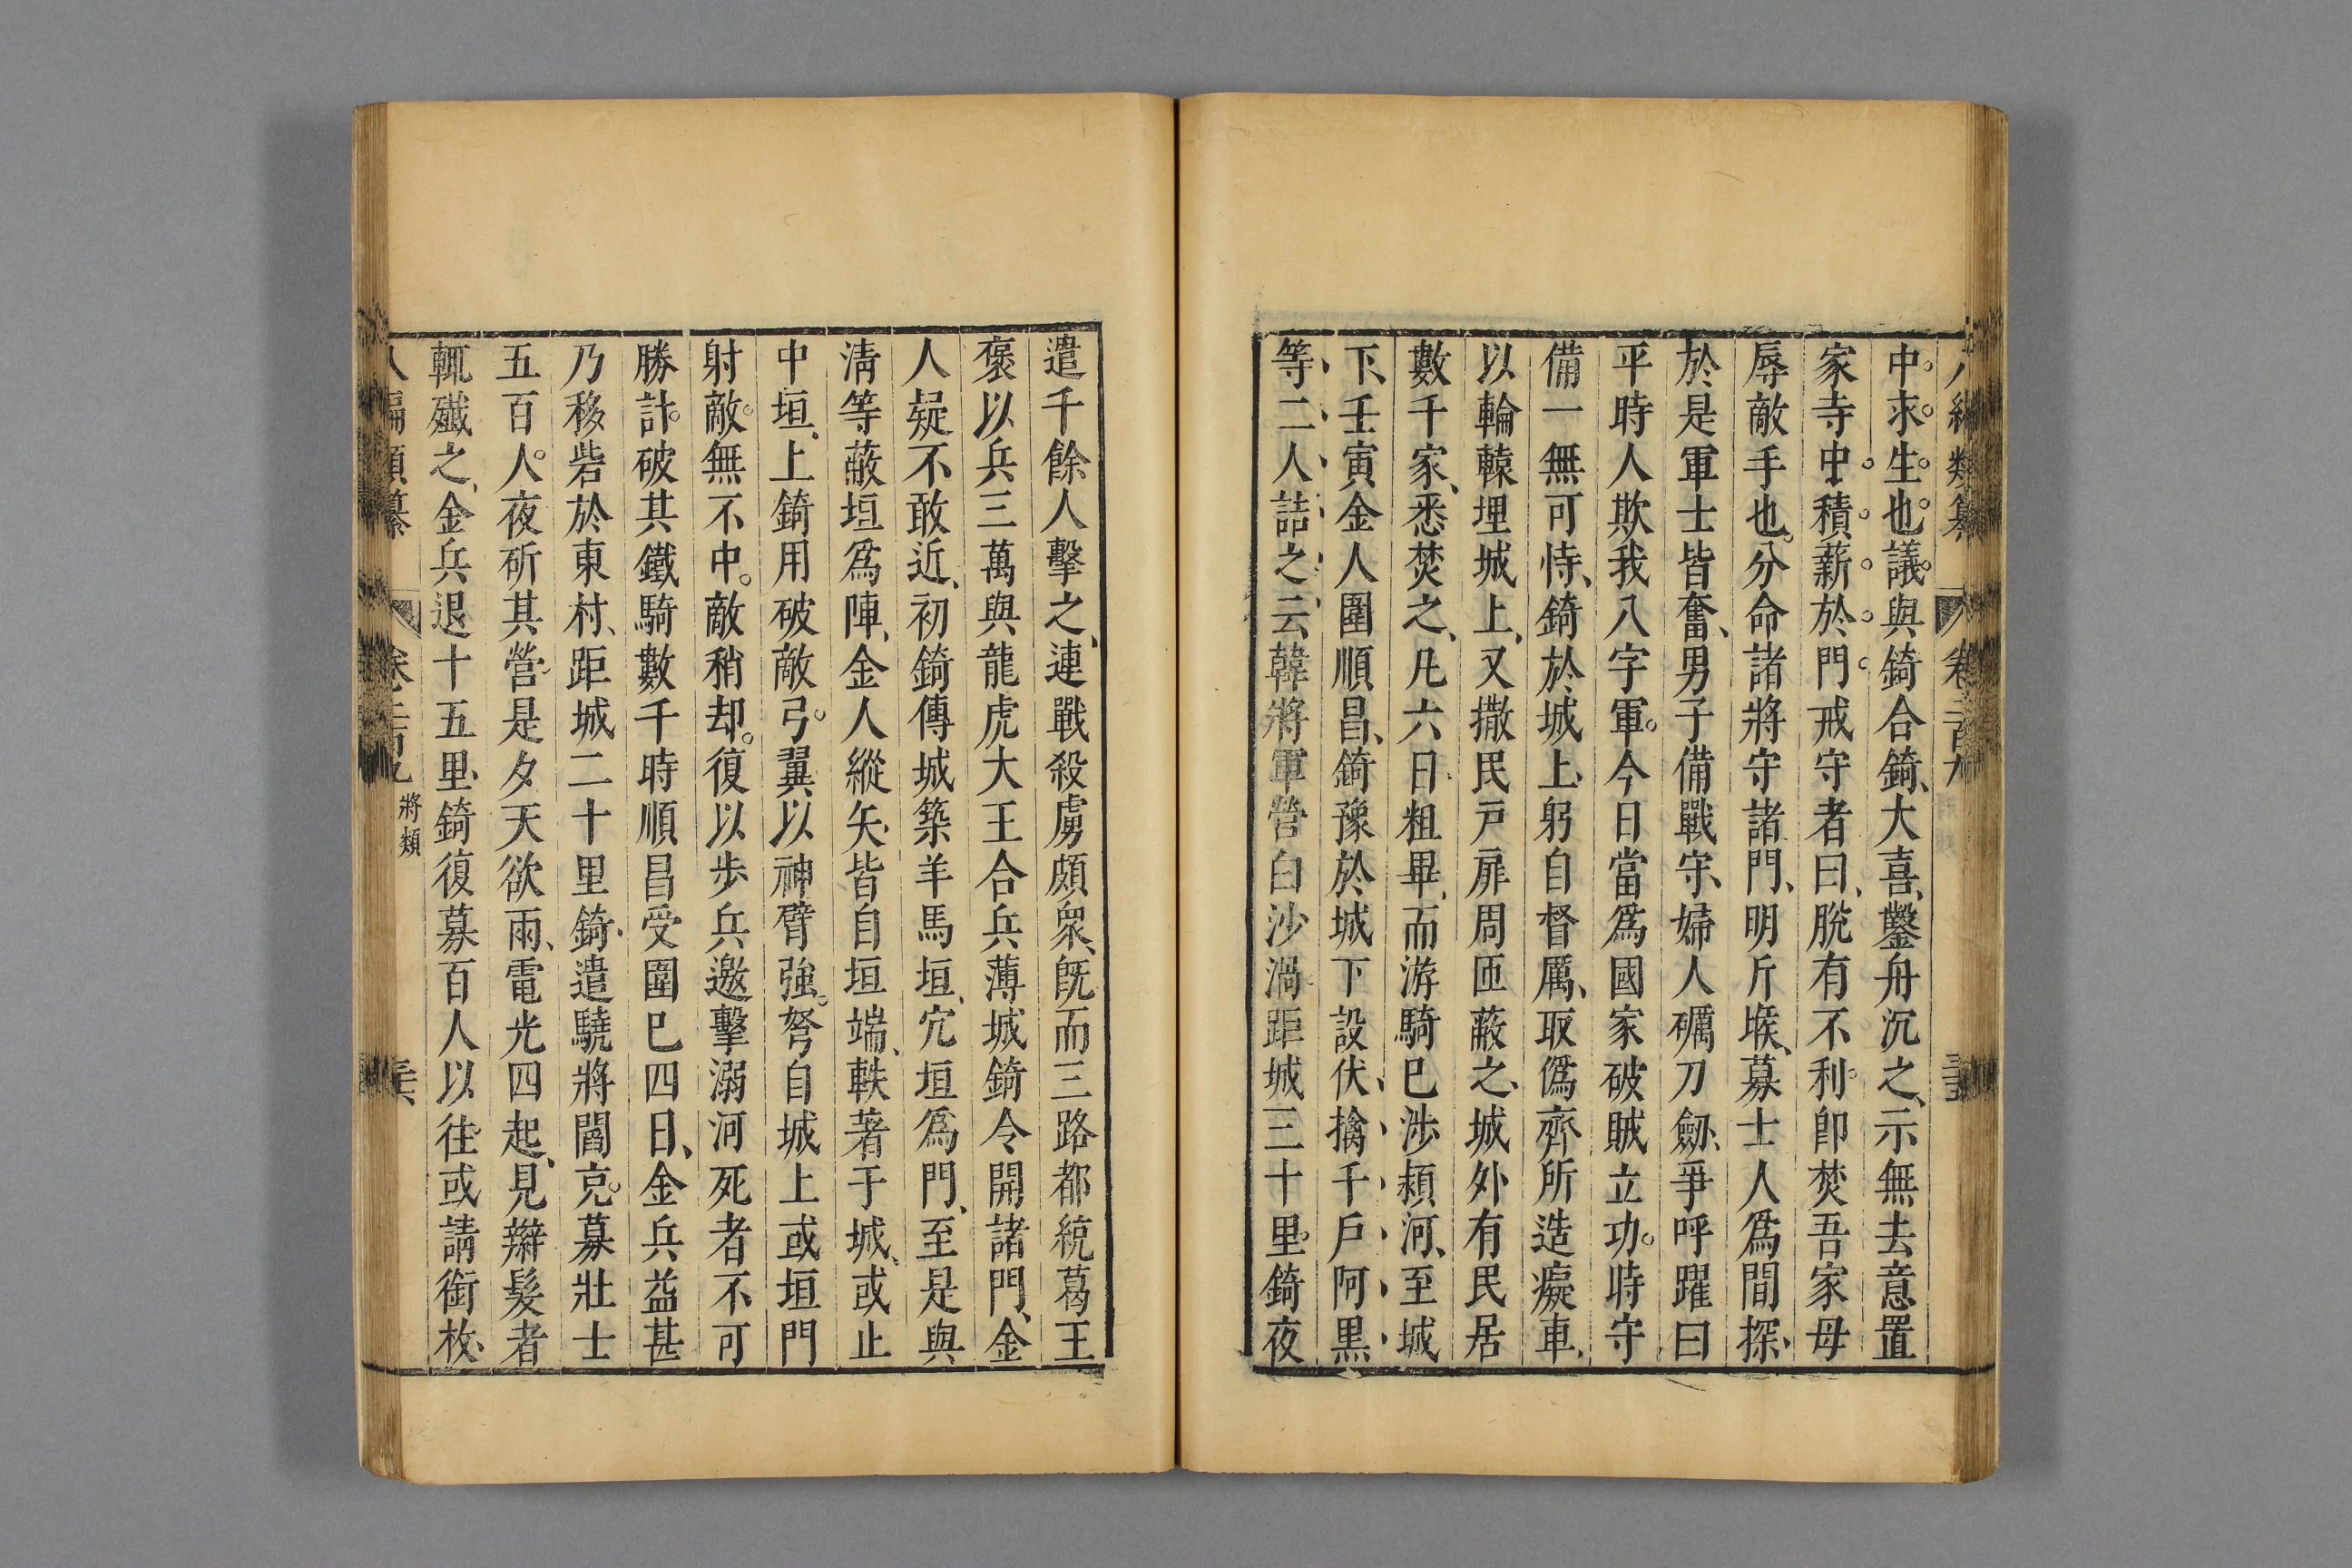 八編類纂 卷二百九
中。求。生。也。議。與錡合錡、大喜、鑿舟沉之、示無去意置
家寺中。積。薪。於。門。戒守者曰、脫有不利。卽焚吾家母
辱敵手也。分命諸將守諸門、明斥堠、募士人爲間探、
於是軍士皆奮、男子備戰守、婦人礪刀劒、爭呼躍曰
平時人欺我八字軍。今日當爲國家破賊立功。時守
備一無可恃、錡於城上、躬自督厲、取僞齊所造癡車、
以輪轅埋城上、又撒民戸扉周匝蔽之、城外有民居
數千家、悉焚之、凡六日粗畢、而游騎已涉潁河、至城
下、壬寅金人圍順昌、錡豫於城下設伏、擒千戶阿黑
等、二、人、詰、之、云、韓將軍營白沙渦距城三十里。錡夜
遣千餘人擊之、連戰殺虜頗衆、旣而三路都統葛王
褒以兵三萬與龍虎大王合兵薄城錡令開諸門、金
人疑不敢近、初錡傳城築羊馬垣、穴垣爲門、至是與
淸等蔽垣爲陣、金人縱矢、皆自垣端、軼著于城、或止
中垣、上錡用破敵弓。翼以神臂強。弩自城上或垣門
射敵。無不中。敵稍却。復以步兵邀擊溺河死者不可
勝計。破其鐵騎數千時順昌受圍已四日、金兵益甚
乃移砦於東村、距城二十里錡、遣驍將閻充。募壯士
五百人。夜斫其營。是夕天欲雨、電光四起、見辮髮者
輒殲之、金兵退十五里、錡復募百人以往。或請銜枚、
八編類纂 卷二百九 將類